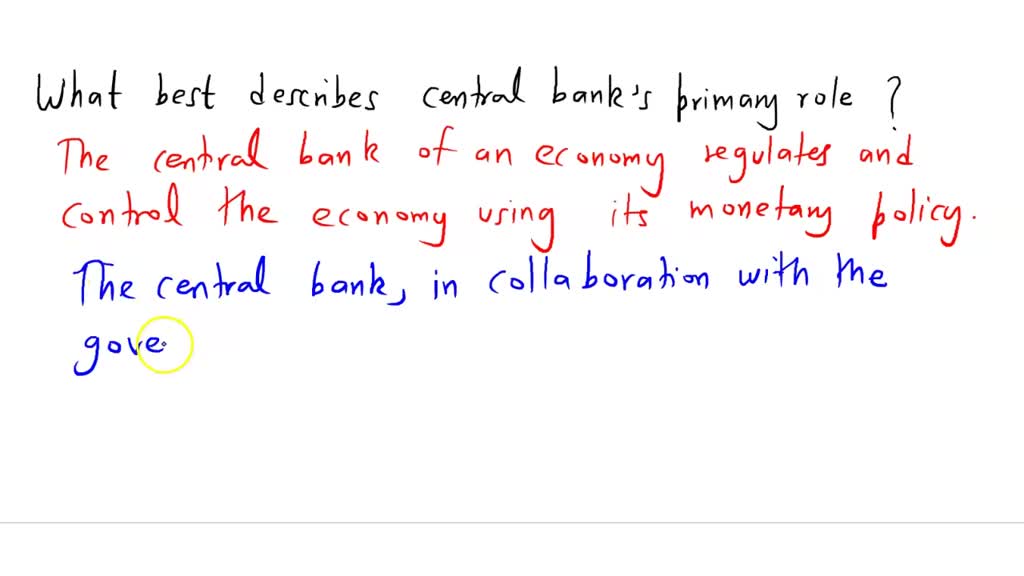 What best describes central bank's primary role ?
The central bank of an economy regulates and
control the economy using its monetary policy.
The central bank, in collaboration with the
gove